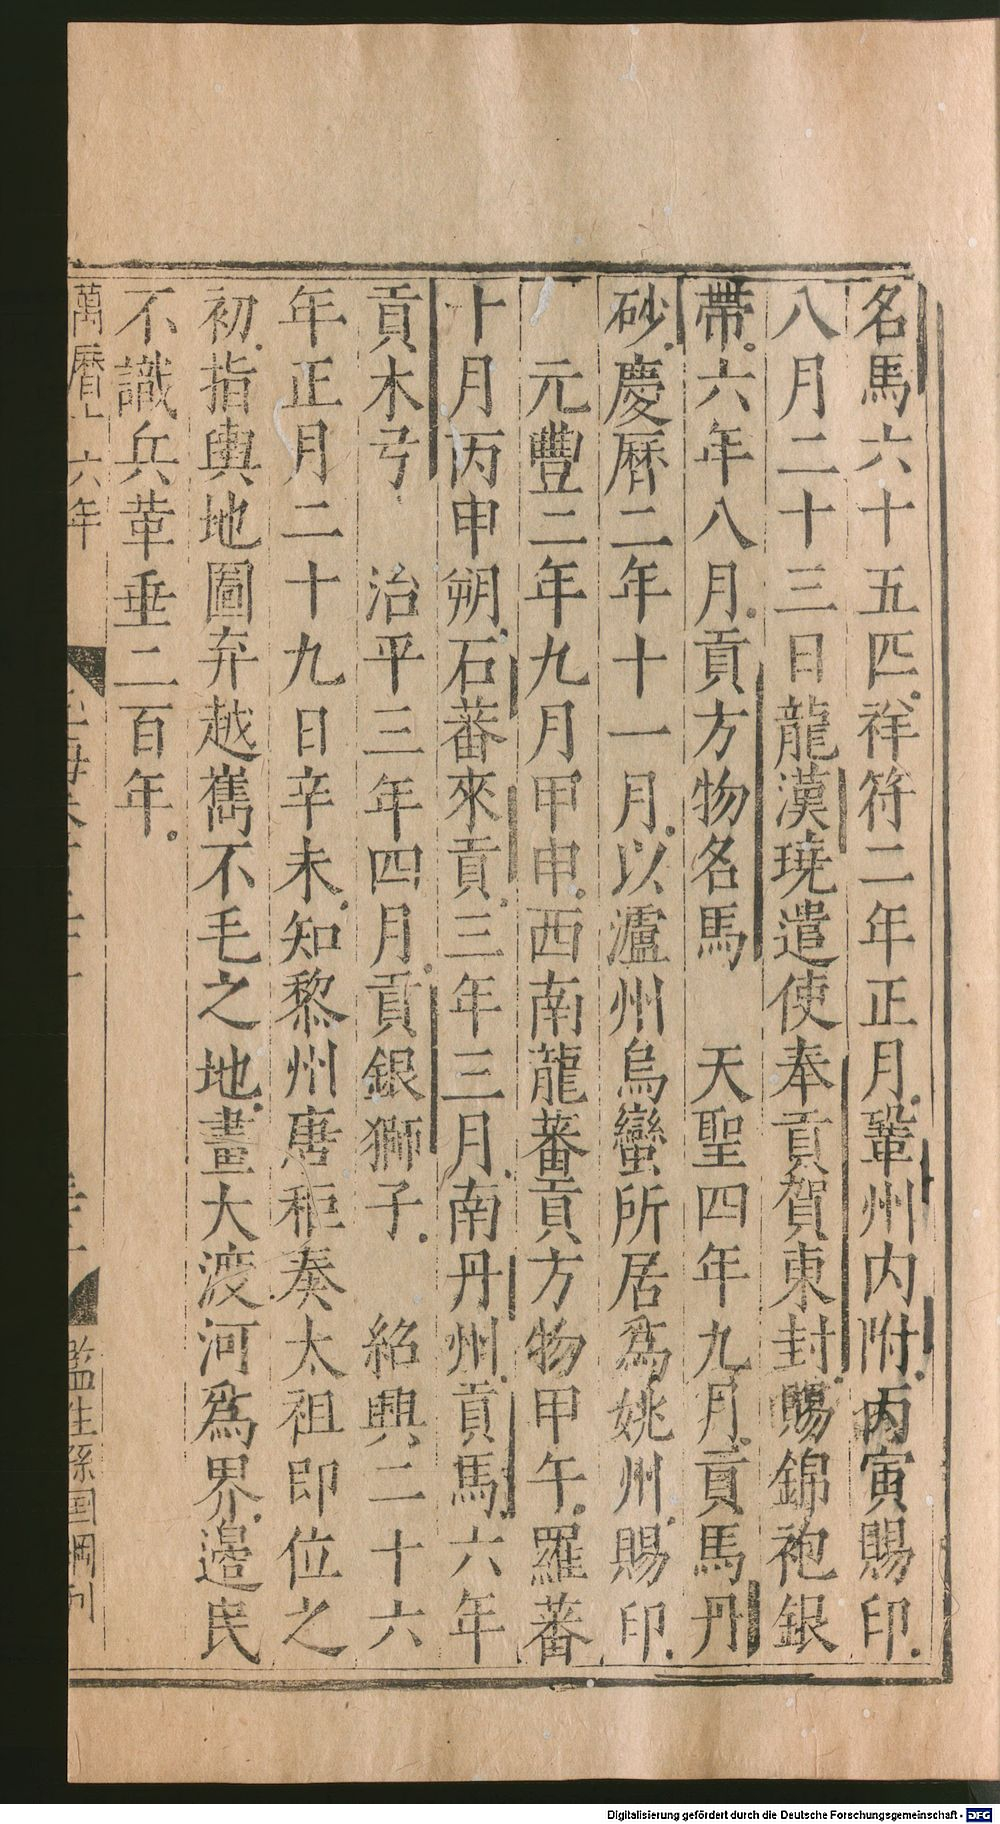 名馬六十五匹祥符二年正月鞏州內附丙寅賜印
八月二十三日龍漢𤩊遣使奉貢賀東封賜錦袍銀
帶六年八月貢方物名馬　天聖四年九月貢馬丹
砂慶曆二年十一月以瀘州烏蠻所居爲姚州賜印
元豐二年九月甲申西南龍蕃貢方物甲午羅蕃
十月丙申朔石蕃來貢三年三月南丹州貢馬六年
貢木弓　治平三年四月貢銀獅子　紹興二十六
年正月二十九日辛未知黎州唐秬奏太祖即位之
初指輿地圖弃越嶲不毛之地畫大渡河爲界邊民
不識兵革垂二百年
萬曆十六年
監生孫国綱刊
Digitalisierung gefördert durch die Deutsche Forschungsgemeinschaft - DFG